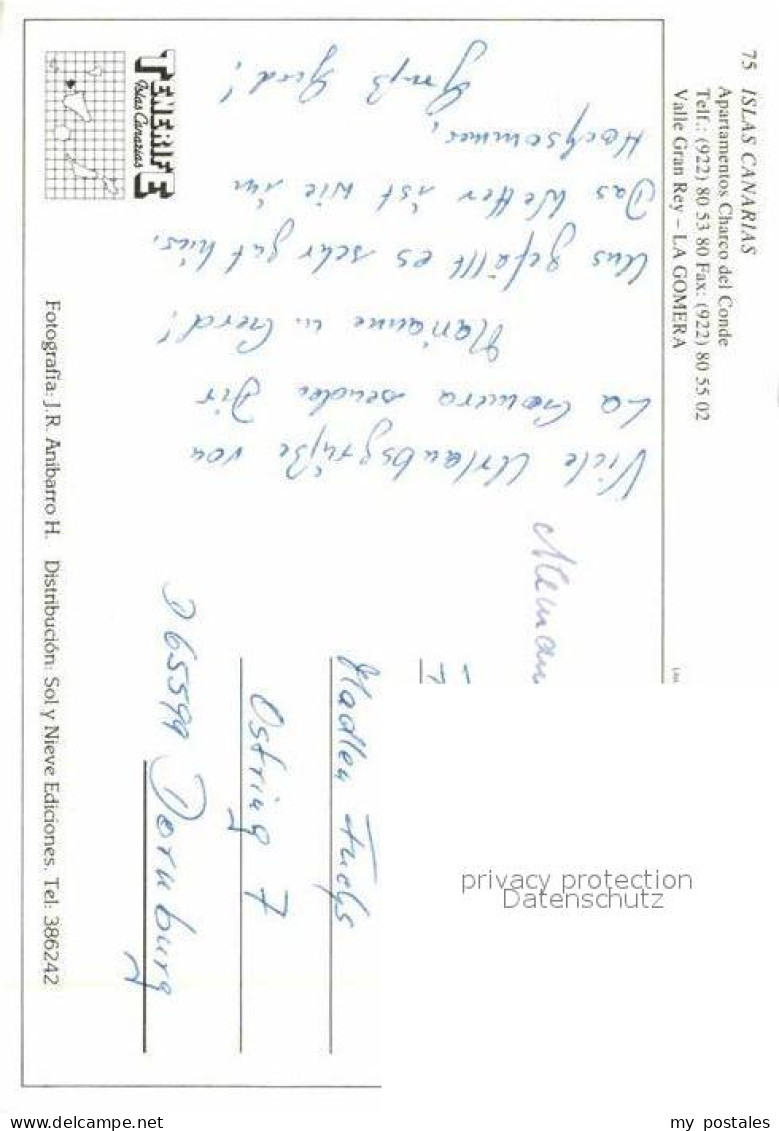 75 ISLAS CANARIAS
Apartamentos Charco del Conde
Telf.: (922) 80 53 80 Fax: (922) 80 55 02
Valle Gran Rey – LA GOMERA
Viele Urlaubsgrüße von
La Gomera senden Dir
Marianne u. Gerd!
Uns gefällt es sehr gut hier.
Das Wetter ist wie im
Hochsommer,
Gruß Gerd!
TENERIFE
Islas Canarias
Aleman
Madlen Fuchs
Ostring 7
D 65599 Dornburg
Fotografía: J.R. Anibarro H. Distribución: Sol y Nieve Ediciones. Tel: 386242
privacy protection
Datenschutz
www.delcampe.net
my_postales